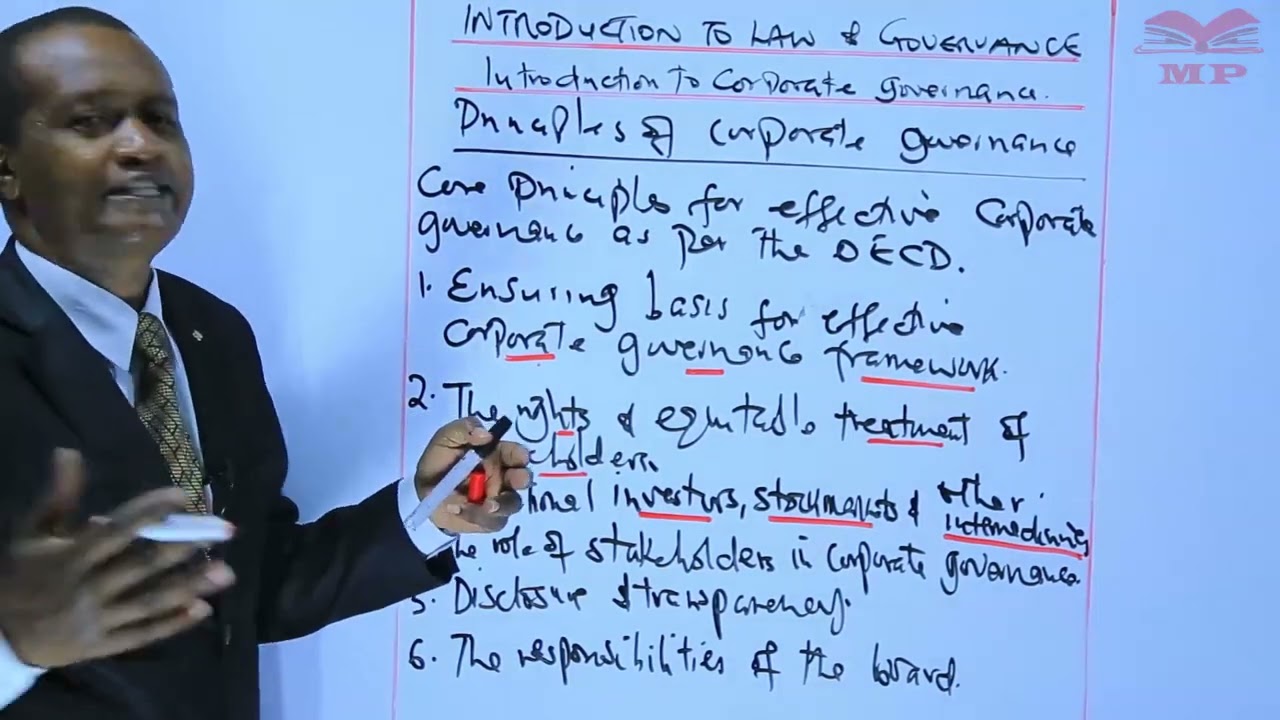 INTRODUCTION TO LAW & GOVERNANCE
MP
Introduction to Corporate governance.
Principles of corporate governance
Core Principles for effective Corporate
governance as per the OECD.
1. Ensuring basis for effective
corporate governance framework.
2. The rights & equitable treatment of
holders.
tional investors, stockmarkets & other
intermediaries
he role of stakeholders in corporate governance.
5. Disclosure & transparency.
6. The responsibilities of the board.